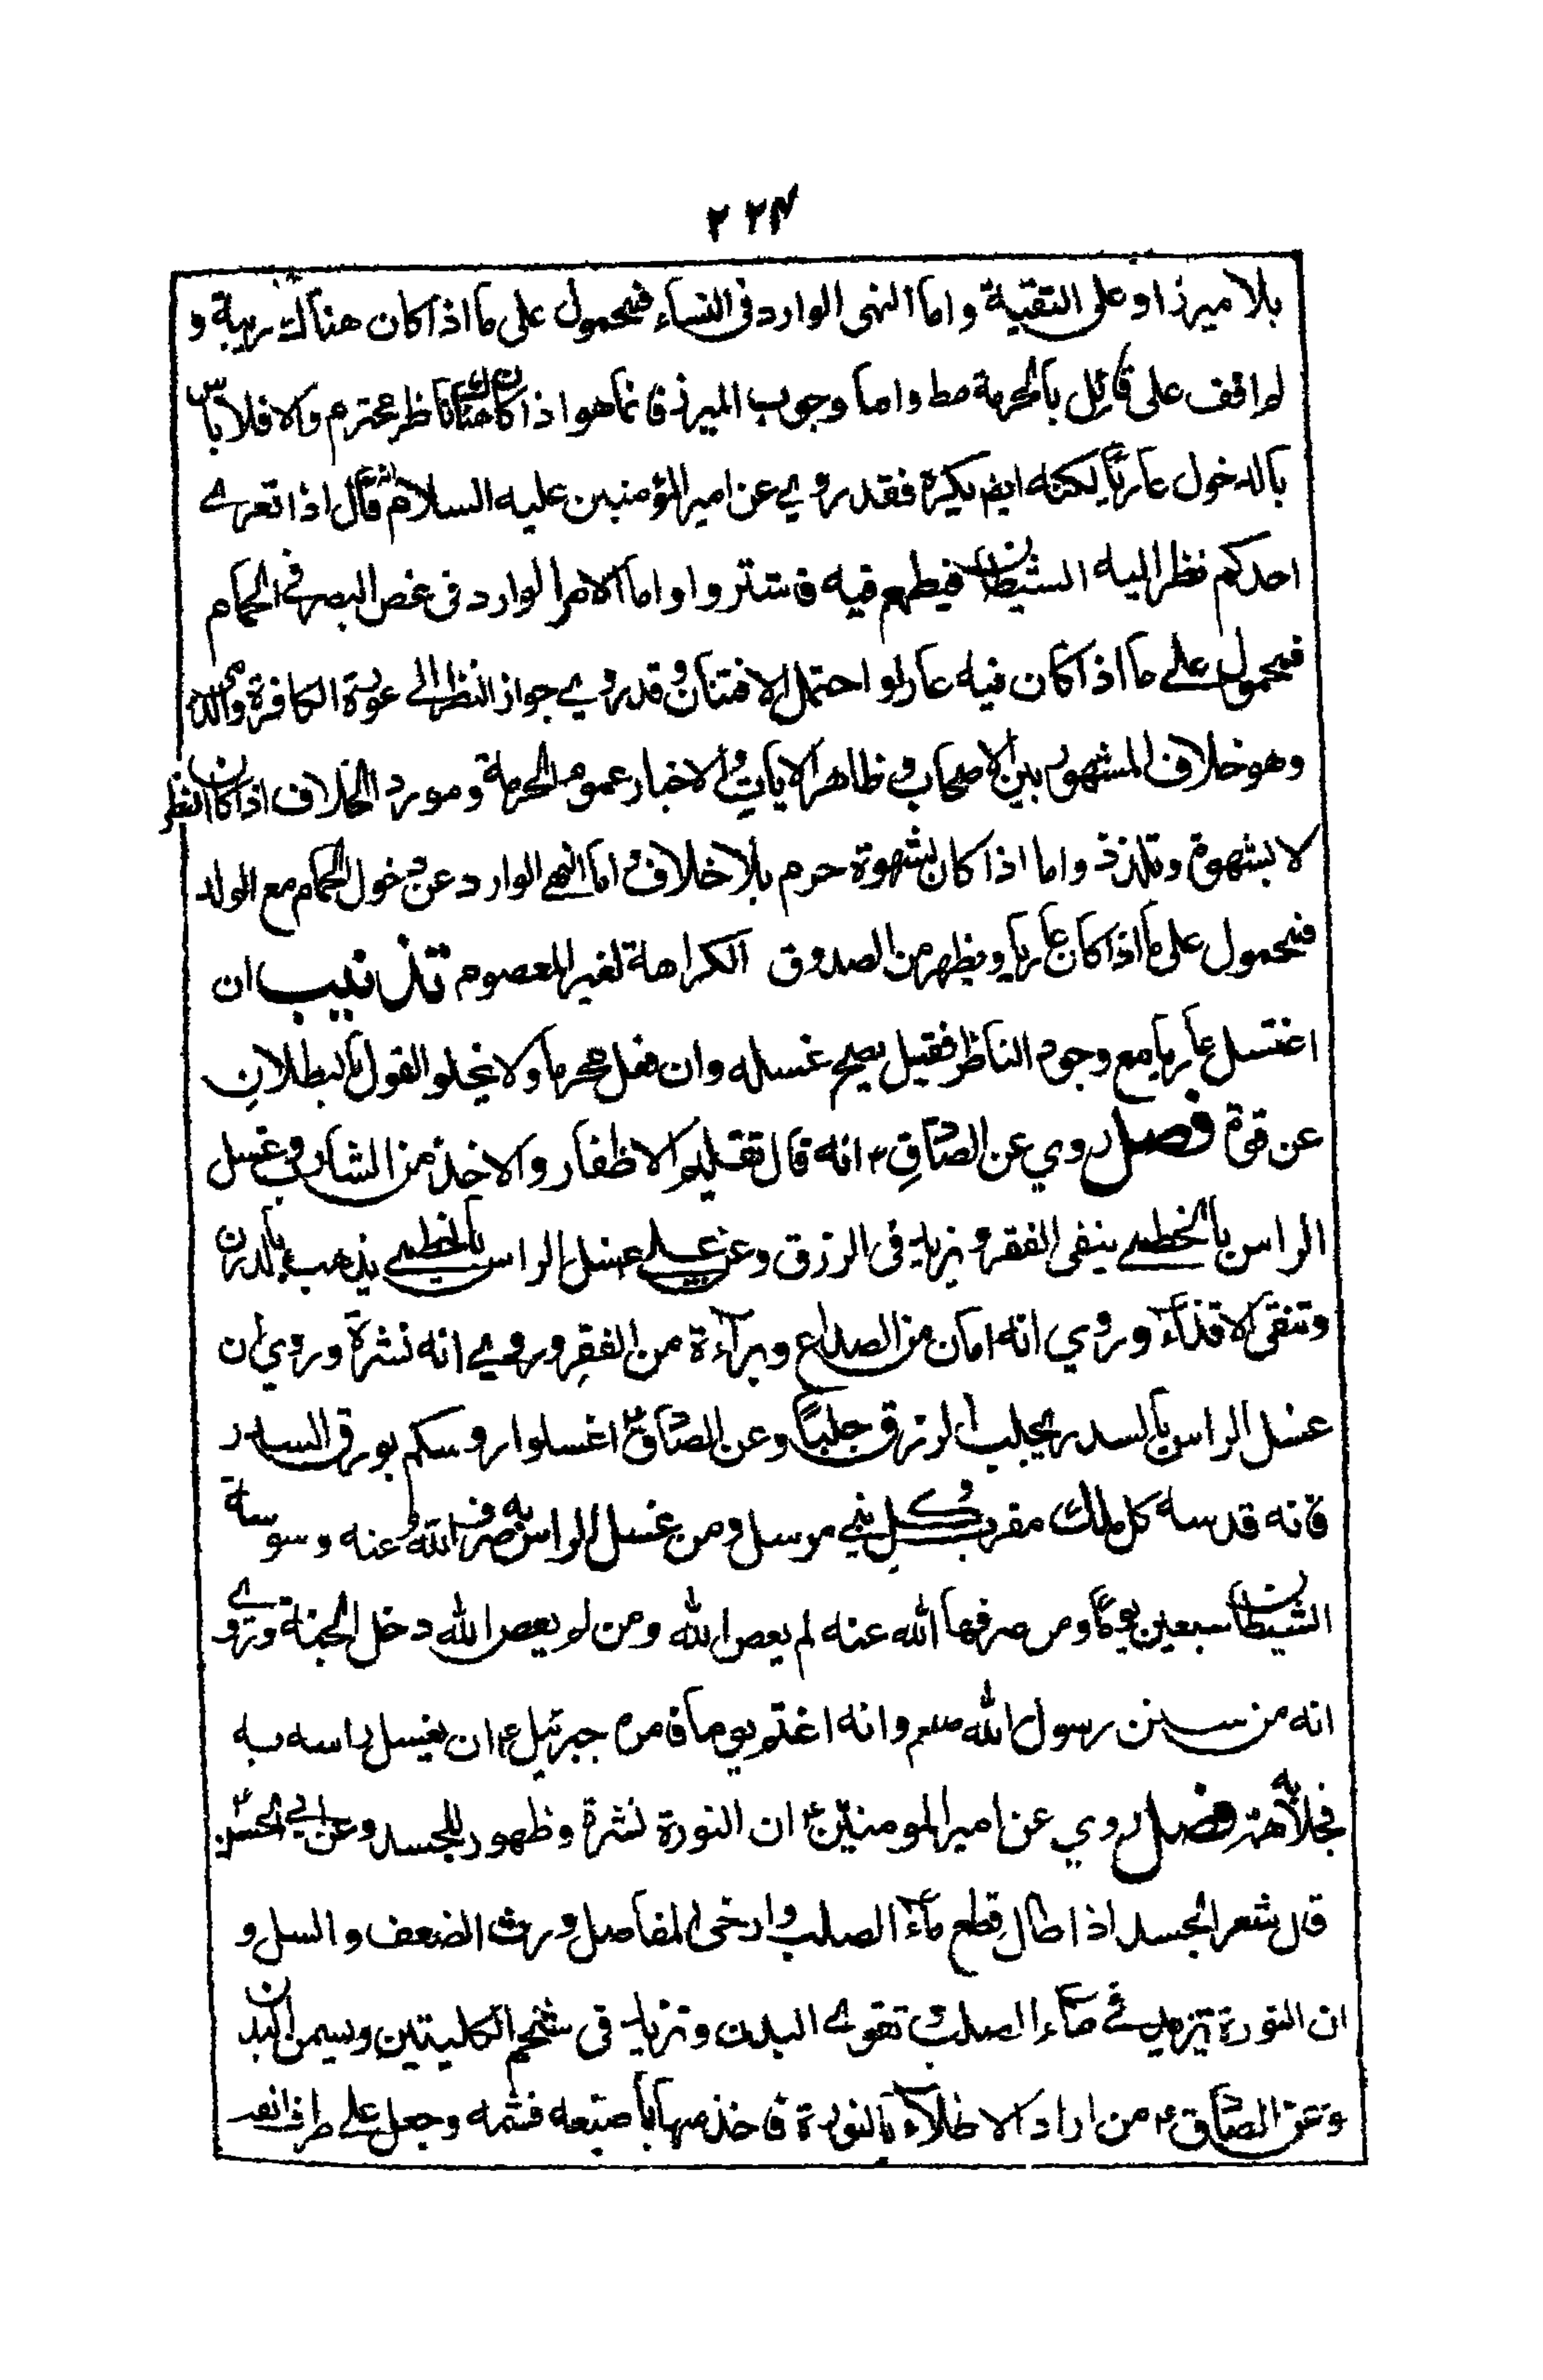 ٢٢٤
بلا ميرز او على التقية واما النهى الوارد فى النساء فمحمول على ما اذا كان هناك ريبة و
لم اقف على قائل بالحرمة مط واما وجوب الميرز فانما هو اذا كان هناك ناظر محترم والا فلا باس
بالدخول عاريا لكنه ايض يكره فقد روي عن امير المؤمنين عليه السلام انه قال اذا تعرى
احدكم نظر اليه الشيطان فيطمع فيه فاستتروا واما الامر الوارد فى غض البصر فى الحمام
فمحمول على ما اذا كان فيه عار او احتمل الافتتان وقد روي جواز النظر الى عورة الكافرة
وهو خلاف المشهور بين الاصحاب و ظاهر الايات و الاخبار عموم الحرمة ومورد الخلاف اذا كان النظر
لا بشهوة وتلذذ واما اذا كان بشهوة حرم بلا خلاف و اما النهى الوارد عن دخول الحمام مع الولد
فمحمول على ما اذا كان عاريا ويظهر من الصدوق الكراهة لغير المعصوم تذنيب ان
اغتسل عاريا مع وجود الناظر فقيل يصح غسله وان فعل محرما ولا يخلو القول بالبطلان
عن قوة فصل روي عن الصادق ع انه قال تقليم الاظفار والاخذ من الشارب وغسل
الراس بالخطمى ينفى الفقر و يزيد فى الرزق وعن على ع غسل الراس بالخطمى يذهب بالدرن
وتنقى الاقذاء وروي انه امان من الصداع وبراءة من الفقر وروي انه نشرة وروي ان
غسل الراس بالسدر يجلب الرزق جلبا وعن الصادق ع اغسلوا روسكم بورق السدر
فانه قدسه كل ملك مقرب وكل نبى مرسل ومن غسل الراس به صرف الله عنه وسوسة
الشيطان سبعين يوما ومن صرفها الله عنه لم يعص الله ومن لم يعص الله دخل الجنة وروي
انه من سنن رسول الله صلعم وانه اغتم يوما فامره جبرئيل ع ان يغسل راسه به
فجلا همه فصل روي عن امير المومنين ع ان النورة نشرة وظهور للجسد وعن ابى الحسن ع
قال شعر الجسد اذا طال قطع ماء الصلب وارخى المفاصل وورث الضعف والسل و
ان النورة تزيد فى ماء الصلب و تقوى البدن وتزيد فى شحم الكليتين ويسمن البدن
وعن الصادق ع من اراد الاطلاء بالنورة فاخذ منها باصبعه فشمه وجعل على طرف انفه